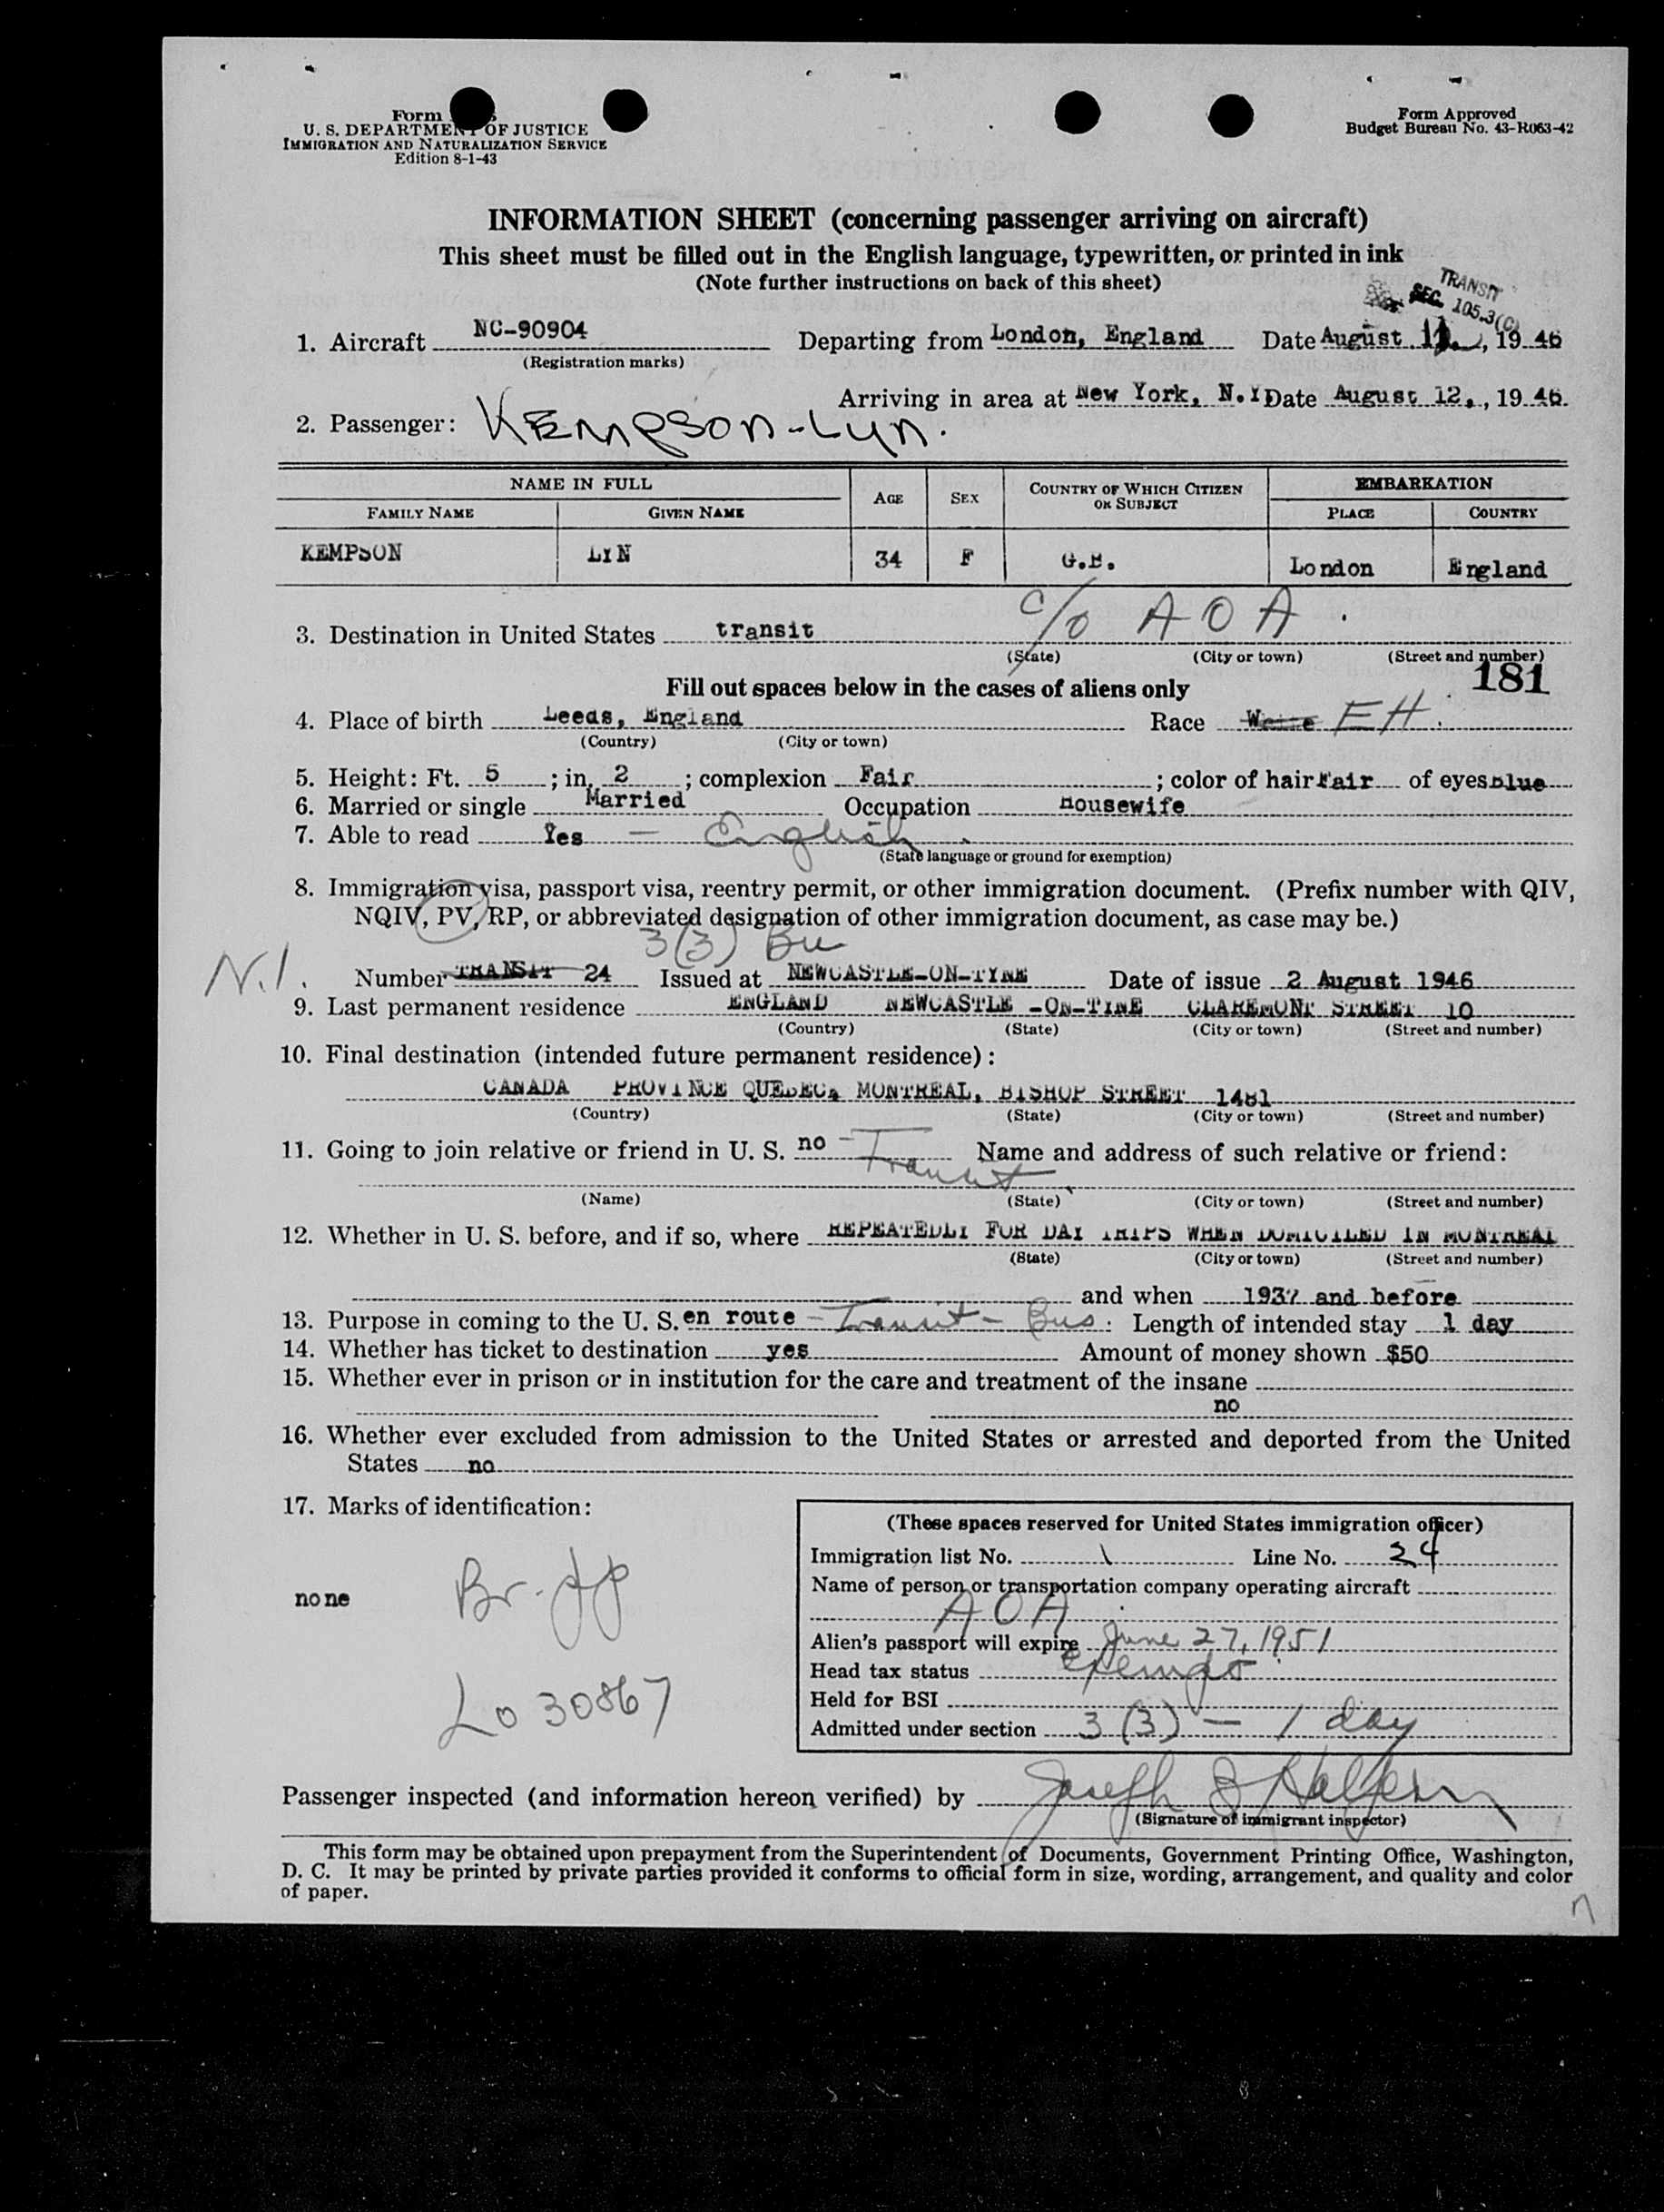 Form
U. S. DEPARTMENT OF JUSTICE
IMMIGRATION AND NATURALIZATION SERVICE
Edition 8-1-43
Form Approved
Budget Bureau No. 43-R063-42
INFORMATION SHEET (concerning passenger arriving on aircraft)
This sheet must be filled out in the English language, typewritten, or printed in ink
(Note further instructions on back of this sheet)
TRANSIT
SEC. 105.3(C)
1. Aircraft NC-90904 Departing from London, England Date August 11, 19 46
(Registration marks)
Arriving in area at New York, N.Y Date August 12, , 19 46.
2. Passenger: KEMPSON-Lyn.
NAME IN FULL AGE SEX COUNTRY OF WHICH CITIZEN OR SUBJECT EMBARKATION
FAMILY NAME GIVEN NAME PLACE COUNTRY
KEMPSON LYN 34 F G.B. London England
c/o AOA .
3. Destination in United States transit
(State) (City or town) (Street and number)
181
Fill out spaces below in the cases of aliens only
4. Place of birth Leeds, England Race White EH.
(Country) (City or town)
5. Height: Ft. 5 ; in. 2 ; complexion Fair ; color of hair Fair of eyes blue
6. Married or single Married Occupation Housewife
7. Able to read Yes — English.
(State language or ground for exemption)
8. Immigration visa, passport visa, reentry permit, or other immigration document. (Prefix number with QIV,
NQIV, PV, RP, or abbreviated designation of other immigration document, as case may be.)
3(3) Bu
N.I. Number TRANSIT 24 Issued at NEWCASTLE-ON-TYNE Date of issue 2 August 1946
9. Last permanent residence ENGLAND NEWCASTLE -ON-TYNE CLAREMONT STREET 10
(Country) (State) (City or town) (Street and number)
10. Final destination (intended future permanent residence):
CANADA PROVINCE QUEBEC, MONTREAL, BISHOP STREET 1481
(Country) (State) (City or town) (Street and number)
11. Going to join relative or friend in U. S. no - Transit Name and address of such relative or friend:
(Name) (State) (City or town) (Street and number)
12. Whether in U. S. before, and if so, where REPEATEDLY FOR DAY TRIPS WHEN DOMICILED IN MONTREAL
(State) (City or town) (Street and number)
and when 1937 and before
13. Purpose in coming to the U. S. en route - Transit - Bus: Length of intended stay 1 day
14. Whether has ticket to destination yes Amount of money shown $50
15. Whether ever in prison or in institution for the care and treatment of the insane
no
16. Whether ever excluded from admission to the United States or arrested and deported from the United
States no
17. Marks of identification:
none
Br.
Lo 30867
(These spaces reserved for United States immigration officer)
Immigration list No. 1 Line No. 24
Name of person or transportation company operating aircraft
AOA
Alien's passport will expire June 27, 1951
Head tax status exempt
Held for BSI
Admitted under section 3(3) — 1 day
Passenger inspected (and information hereon verified) by Joseph Halpern
(Signature of immigrant inspector)
This form may be obtained upon prepayment from the Superintendent of Documents, Government Printing Office, Washington,
D. C. It may be printed by private parties provided it conforms to official form in size, wording, arrangement, and quality and color
of paper.